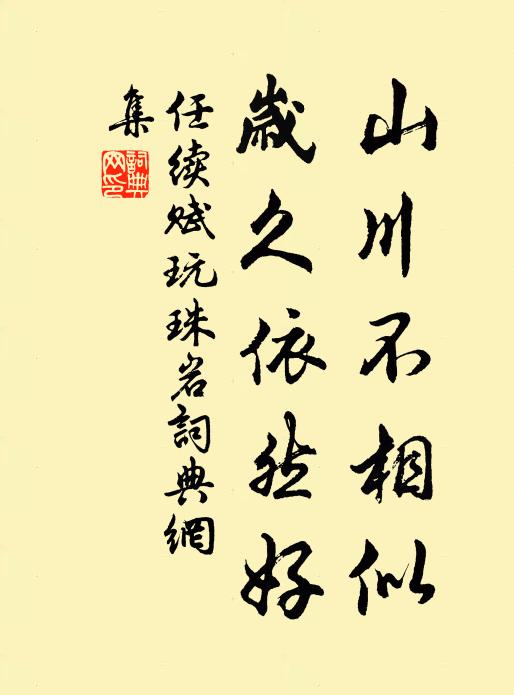 山川不相似
歲久依然好
任續賦玩珠岩詞典網
集
詞典
网印